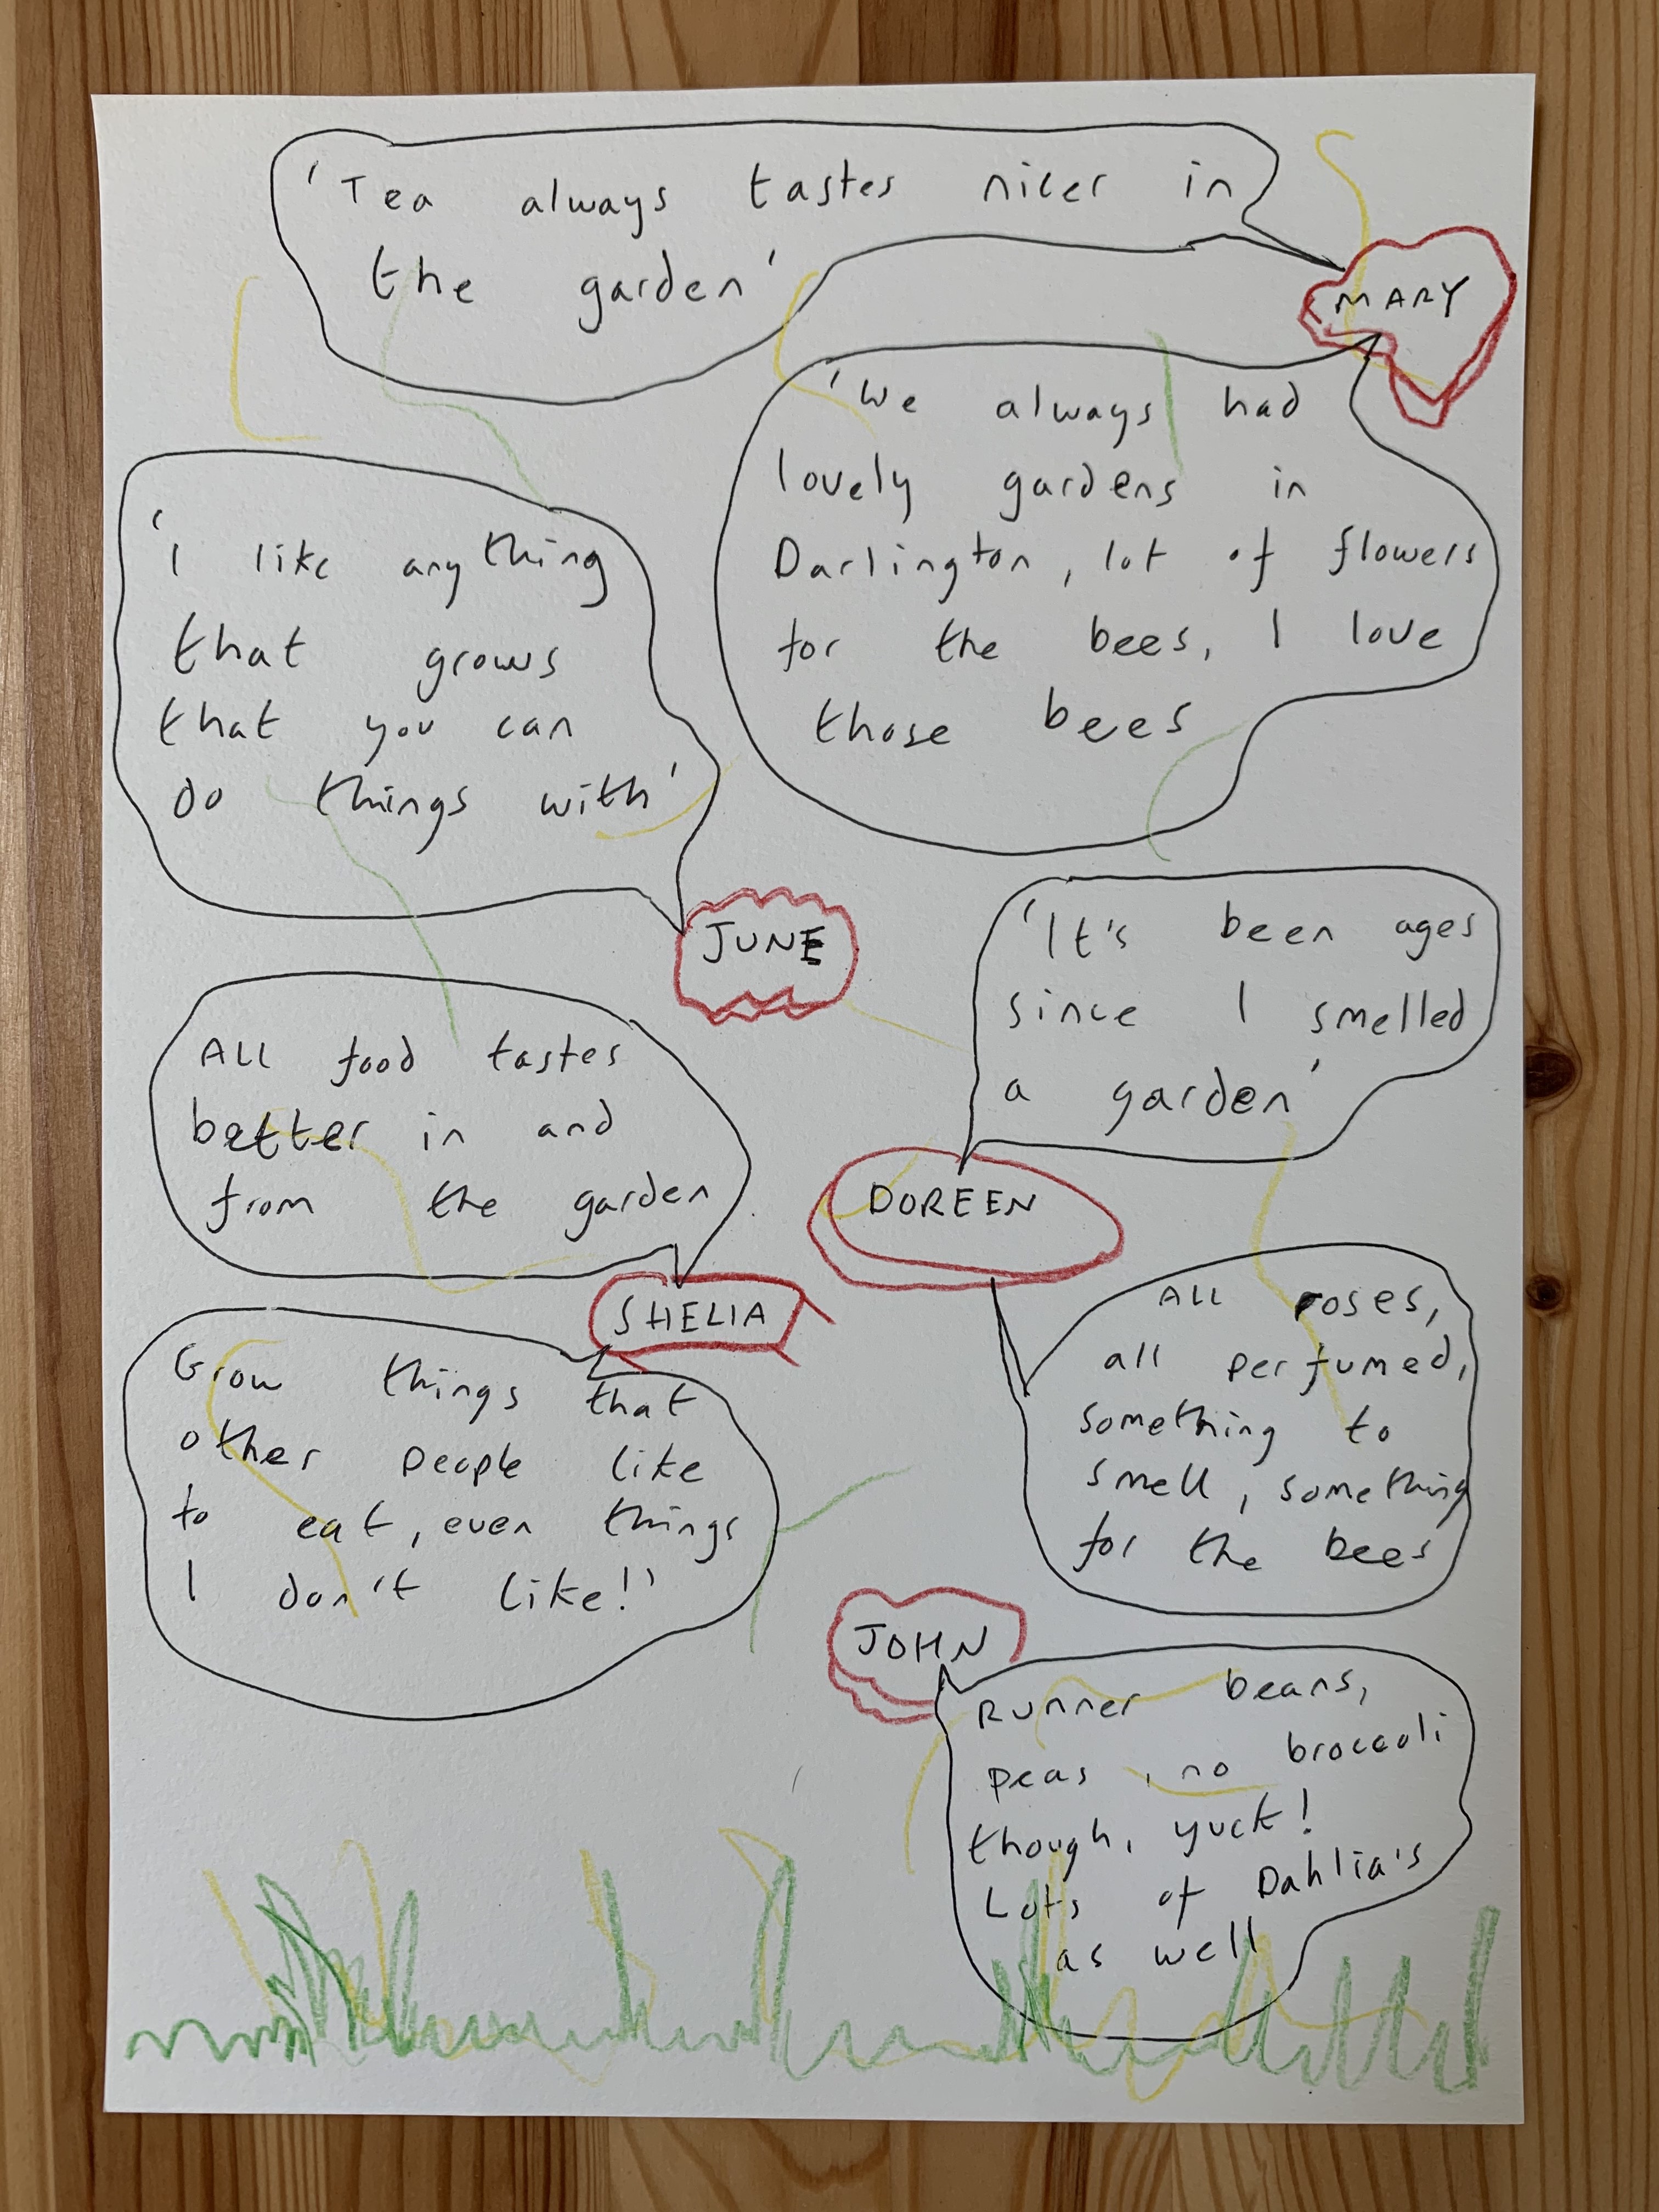 'Tea always tastes nicer in
the garden'
MARY
'We always had
lovely gardens in
Darlington, lot of flowers
for the bees, I love
those bees
'I like anything
that grows
that you can
do things with'
JUNE
'It's been ages
since I smelled
a garden'
DOREEN
All roses,
all perfumed,
something to
smell, something
for the bees
All food tastes
better in and
from the garden
SHELIA
Grow things that
other people like
to eat, even things
I don't like!'
JOHN
Runner beans,
peas, no broccoli
though, yuck!
Lots of Dahlia's
as well